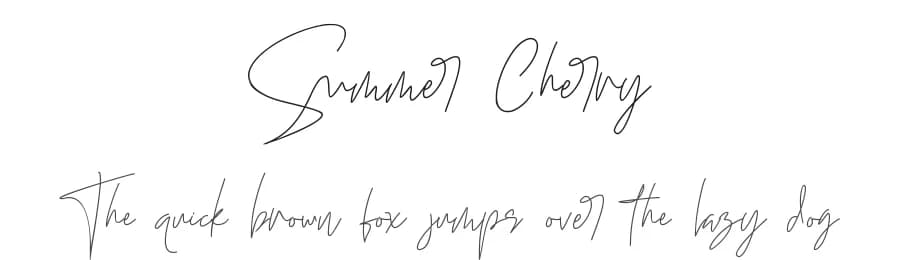 Summer Cherry
The quick brown fox jumps over the lazy dog